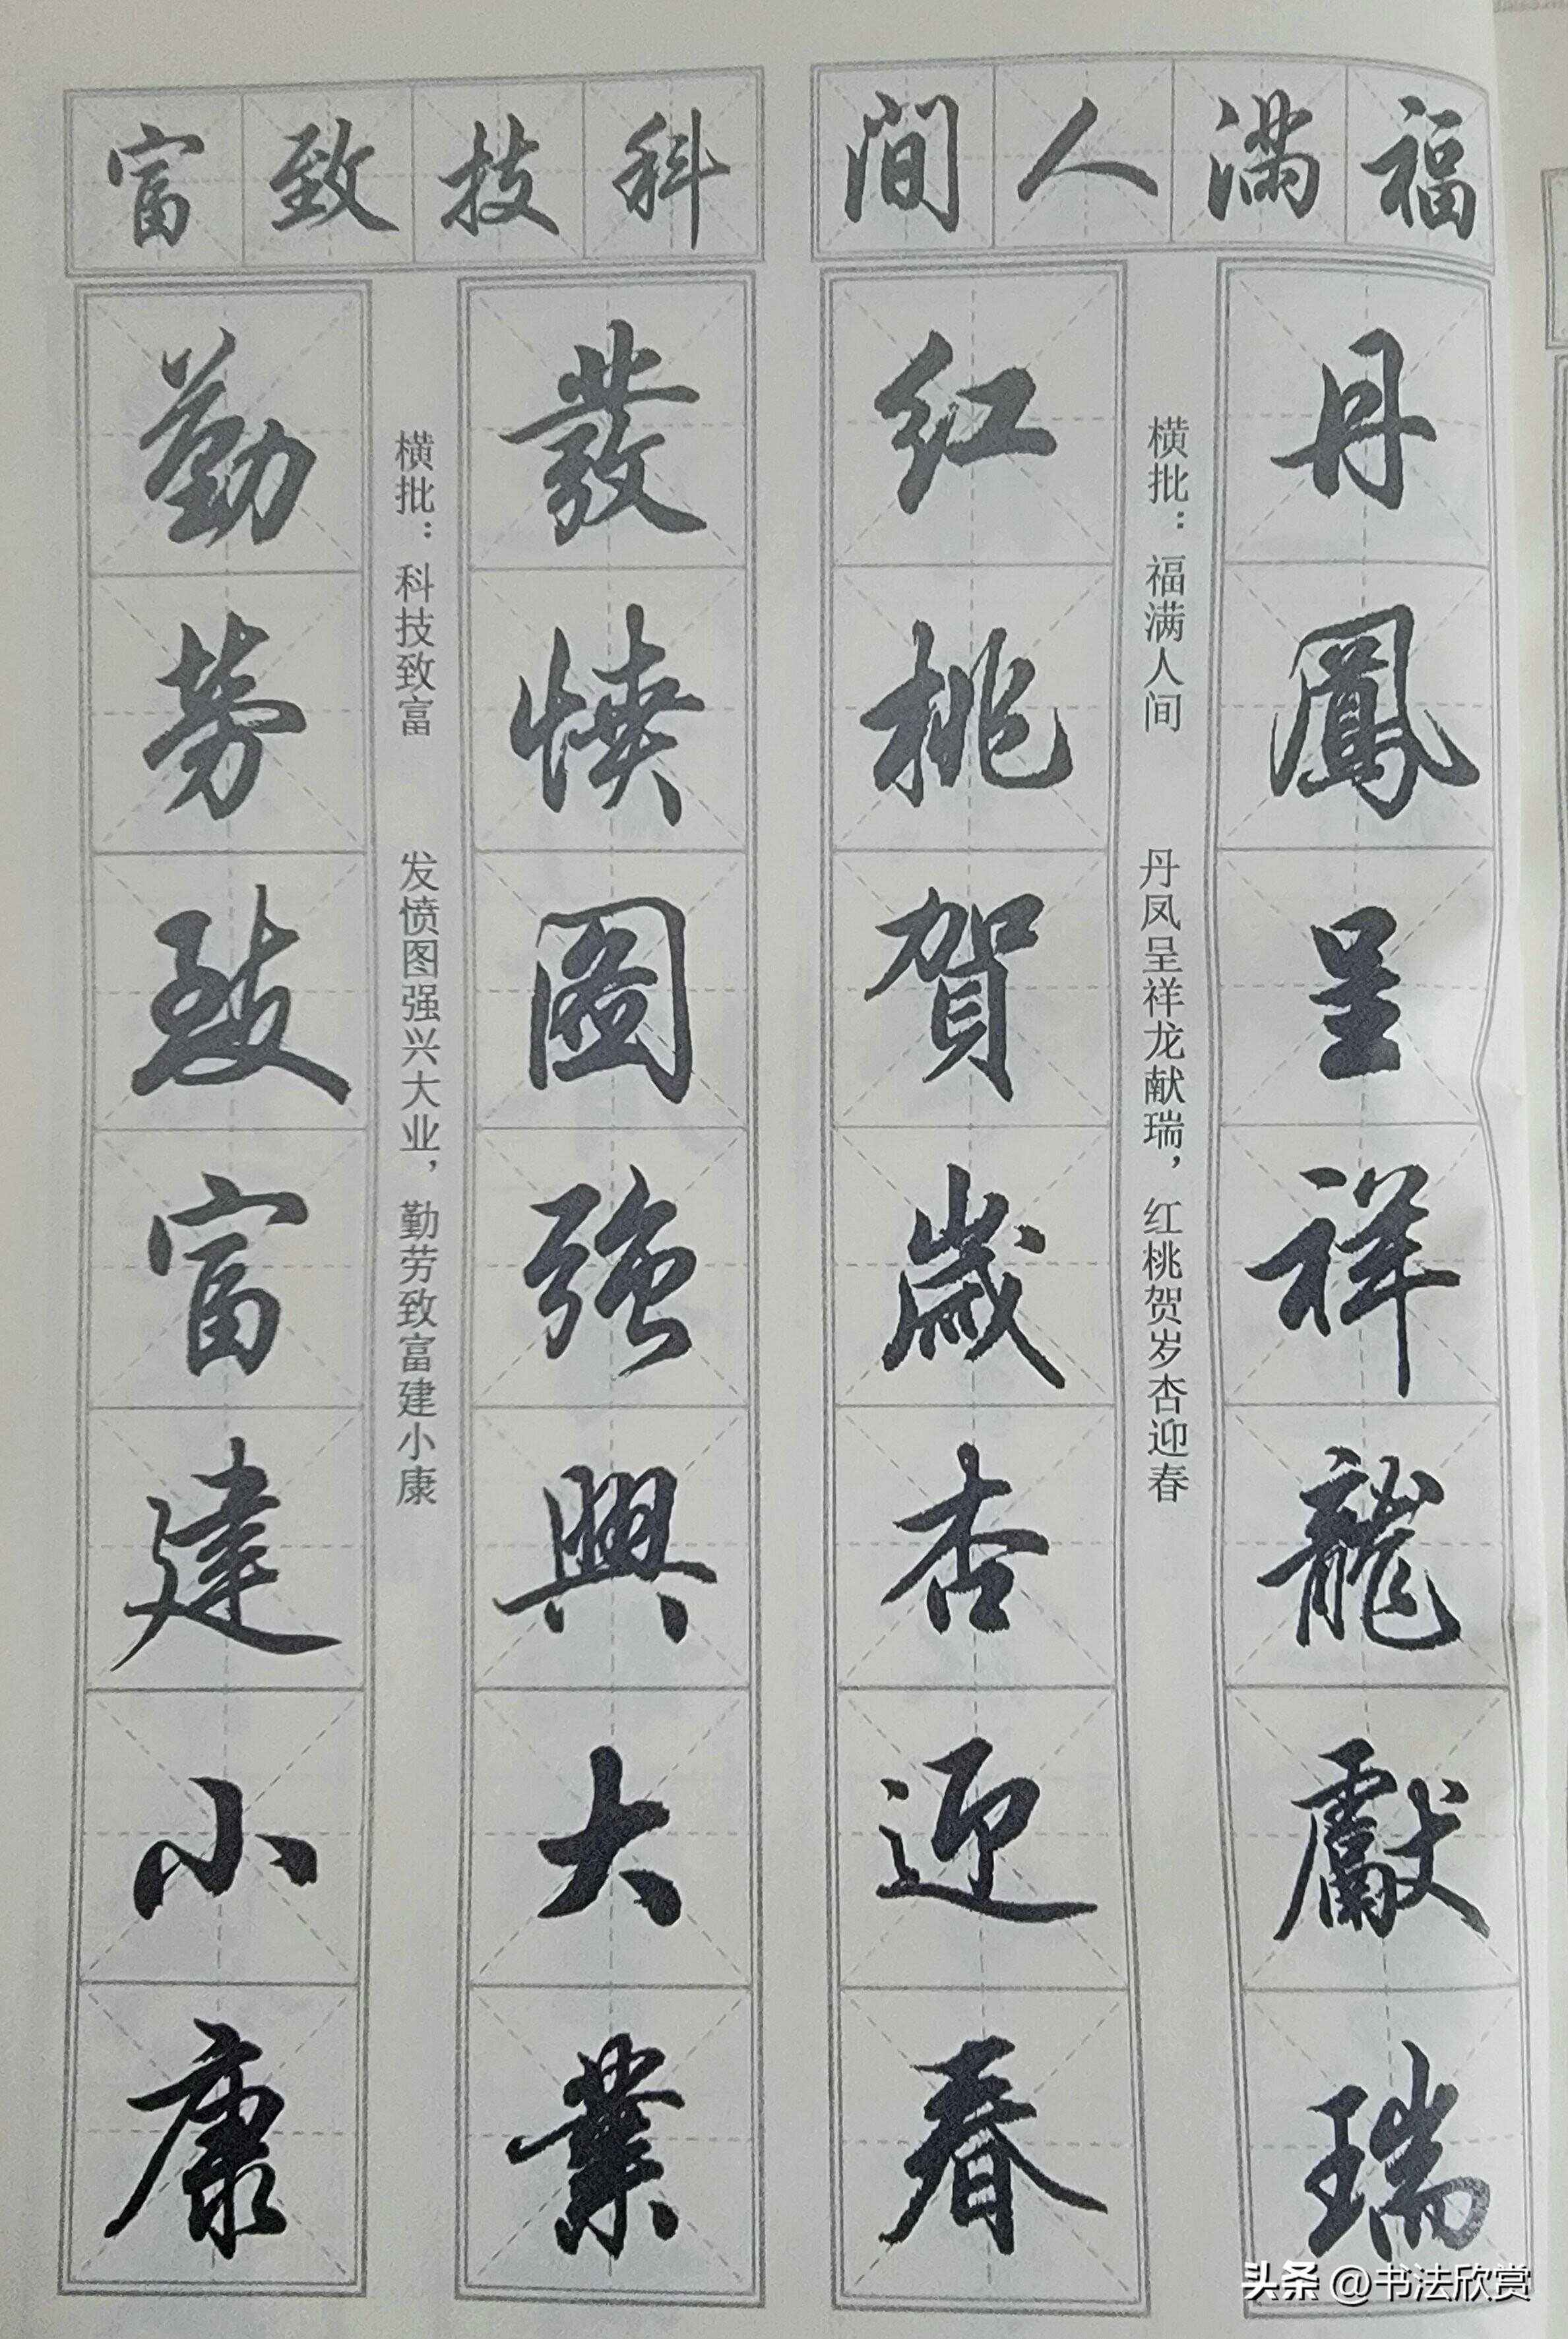 福满人间
丹鳳呈祥龍獻瑞
横批：福满人间　丹凤呈祥龙献瑞，红桃贺岁杏迎春
红桃賀歲杏迎春
科技致富
發憤圖强興大業
横批：科技致富　发愤图强兴大业，勤劳致富建小康
勤劳致富建小康
头条 @书法欣赏